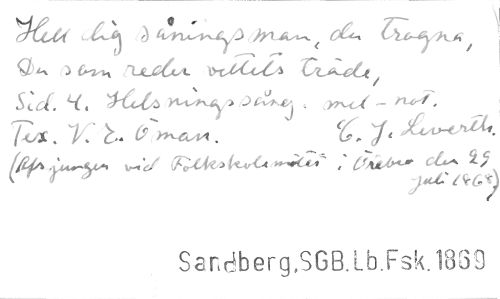 Hell dig såningsman, du trogna,
Du som reder vettets träde,
Sid. 4. Helsningssång. mel-not.
Tex. V. E. Öman. C. J. Leverth.
(Afsjungen vid Folkskolemötet i Örebro den 29
juli 1868)
Sandberg,SGB.Lb.Fsk.1869